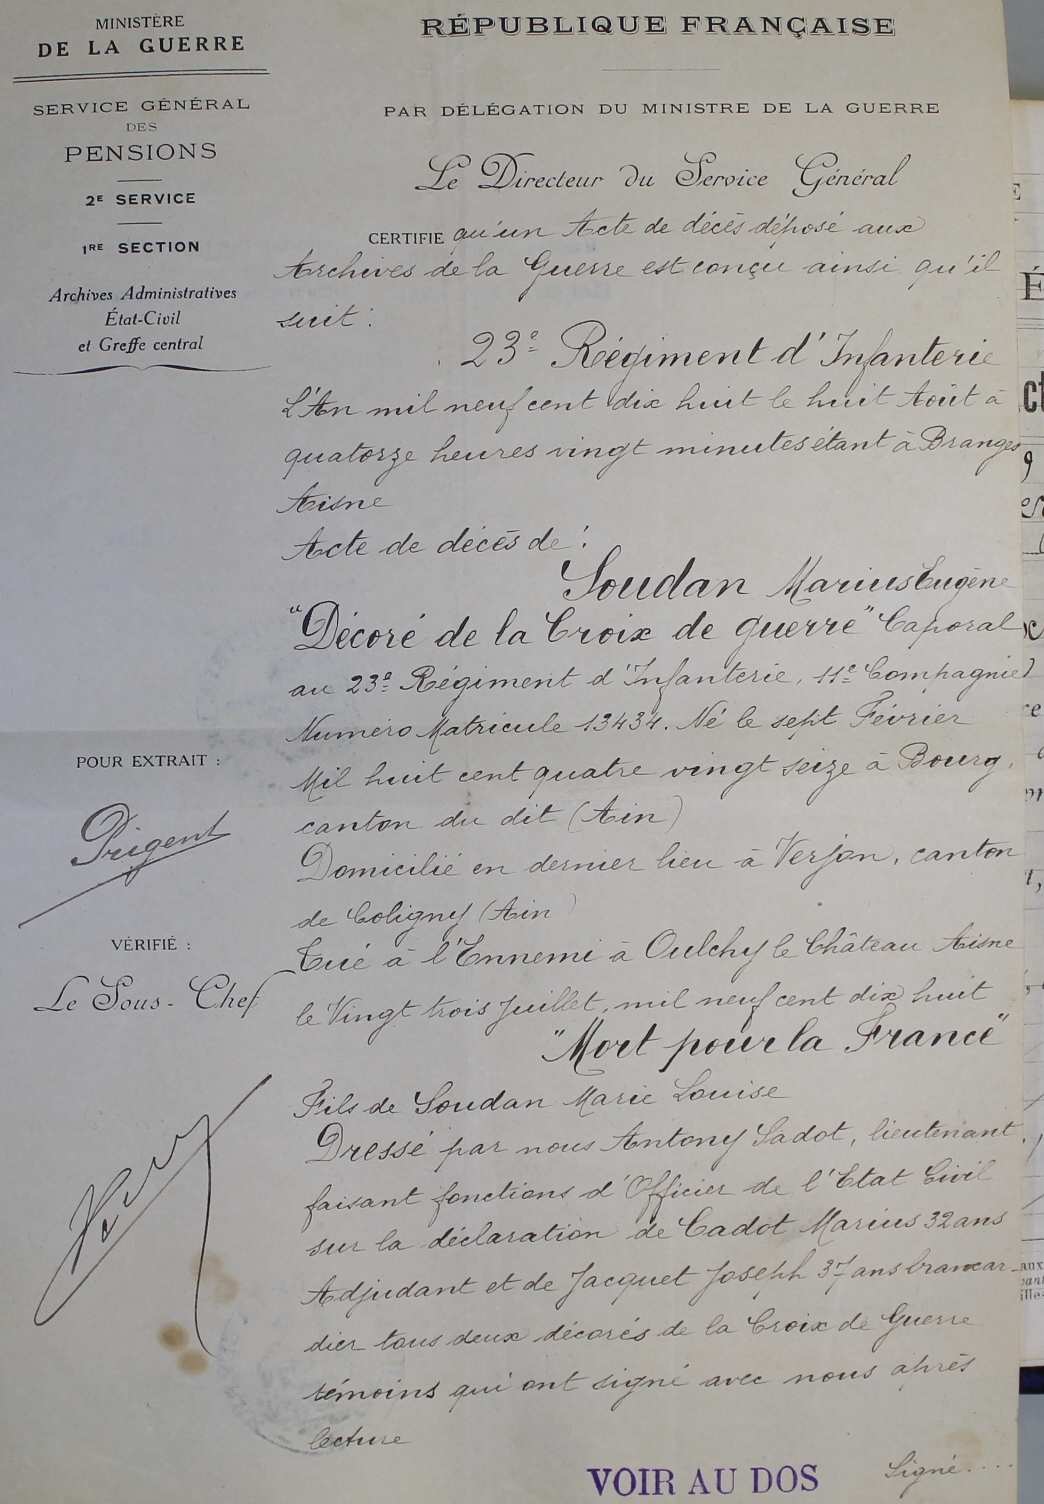 MINISTÈRE
DE LA GUERRE
SERVICE GÉNÉRAL
DES
PENSIONS
2E SERVICE
1RE SECTION
Archives Administratives
État-Civil
et Greffe central
RÉPUBLIQUE FRANÇAISE
PAR DÉLÉGATION DU MINISTRE DE LA GUERRE
Le Directeur du Service Général
CERTIFIE qu'un Acte de décès déposé aux
Archives de la Guerre est conçu ainsi qu'il
suit :
23e Régiment d'Infanterie
L'An mil neuf cent dix huit le huit Août à
quatorze heures vingt minutes étant à Branges
Aisne
Acte de décès de :
Soudan Marius Eugène
"Décoré de la Croix de guerre" Caporal
au 23e Régiment d'Infanterie, 11e Compagnie
Numéro Matricule 13434. Né le sept Février
Mil huit cent quatre vingt seize à Bourg,
canton du dit (Ain)
Domicilié en dernier lieu à Verjon, canton
de Coligny (Ain)
Tué à l'Ennemi à Oulchy le Château Aisne
le Vingt trois Juillet, mil neuf cent dix huit
"Mort pour la France"
Fils de Soudan Marie Louise
Dressé par nous Antony Sadot, lieutenant,
faisant fonctions d'Officier de l'Etat Civil
sur la déclaration de Cadot Marius 32 ans
Adjudant et de Jacquet Joseph 37 ans brancar-
dier tous deux décorés de la Croix de Guerre
témoins qui ont signé avec nous après
lecture
Signé....
POUR EXTRAIT :
Prigent
VÉRIFIÉ :
Le Sous-Chef
VOIR AU DOS